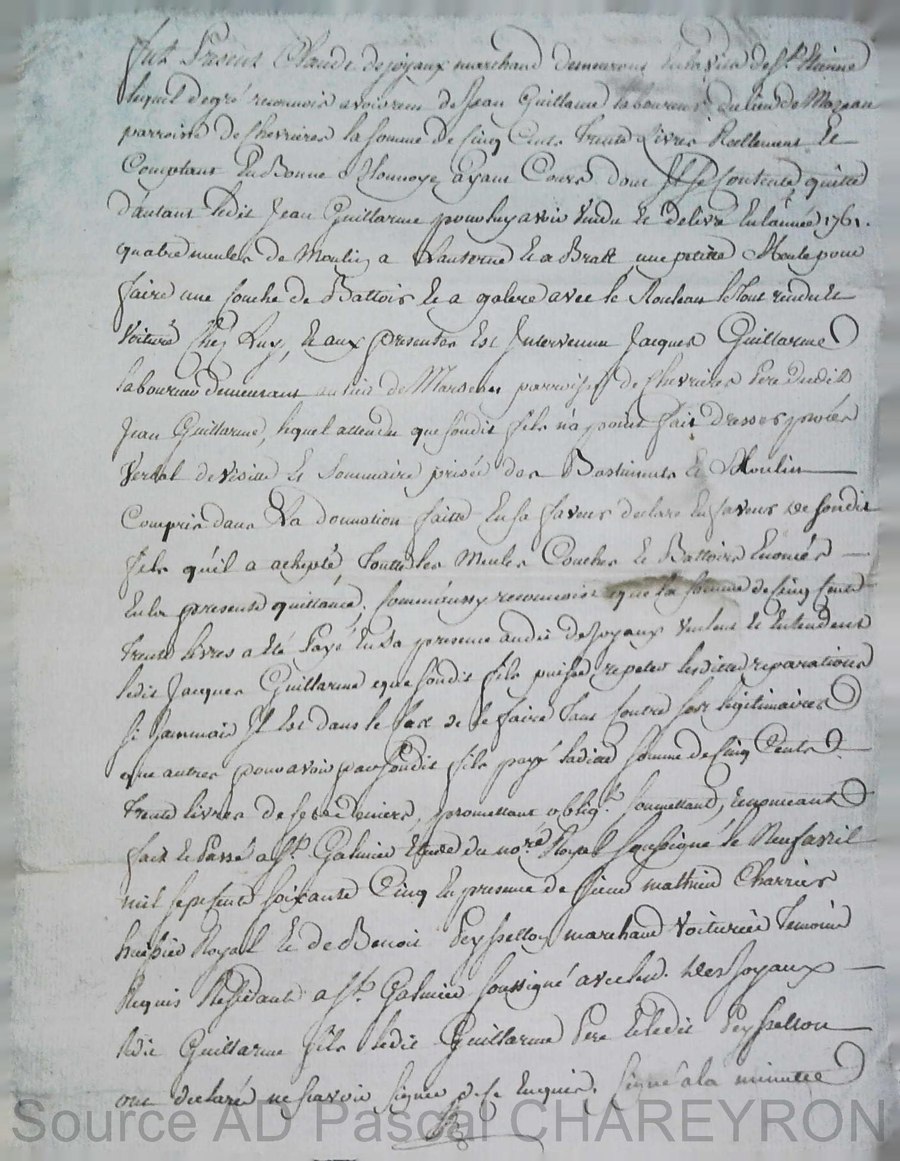 fut Present Claude dejoyaux marchand demeurant en la ville de St. Etienne
lequel de gré reconnoit avoir reçu de Jean Guillarme laboureur du lieu de Mazean
parroisse de Chevrieres la somme de Cinq Cents Trente Livres Reellement Et
Comptant En Bonne Monnoye ayant Cours dont Il Se Contente quitte
d'autant ledit Jean Guillarme pour luy avoir Vendu Et delivré En l'année 1761.
quatre meules de Moulin a Et a une petitte Meule pour
faire une Couche de Battoir Et a avec le Rouleau le tout rendu Et
Voituré Chez Luy, Et aux presentes Est Intervenu Jacques Guillarme
laboureur demeurant au lieu de parroisse de Chevrieres Pere dudit
Jean Guillarme, lequel attendu que sondit fils n'a point fait dresser procés
Verbal de Visitte Et Sommaire prisée des Bastiments Et Moulin
Compris dans La donnation faitte En sa faveur declare En faveur de sondit
fils qu'il a achepté Toutte les Meules Couches Et Battoirs Enoncés
En la presente quittance, reconnoit que la somme de Cinq Cents
Trente livres a Eté Payé En sa presence audit dejoyaux Veulent Et Entendent
ledit Jacques Guillarme que sondit fils puisse repeter lesdittes reparations
si Jammais Il Est dans le Cas de le faire Tant Contre ses legitimaires
que autres pour avoir par sondit fils payé ladite somme de Cinq Cents
Trente livres de ses deniers, promettant oblig.t soumettant, renonceant
fait Et Passé a St. Galmier Etude du no.re Royal soussigné le Neuf avril
mil sept Cents soixante Cinq En presence de sieur mathieu Charrier
huissier Royal Et de Benoit Peysselon marchand Voiturier Temoins
Requis Residants a St. Galmier soussigné avec led. dejoyaux
ledit Guillarme fils ledit Guillarme Pere Et ledit Peysselon
ont declaré ne sçavoir signer de ce Enquis. signé a la minutte
Source AD Pascal CHAREYRON